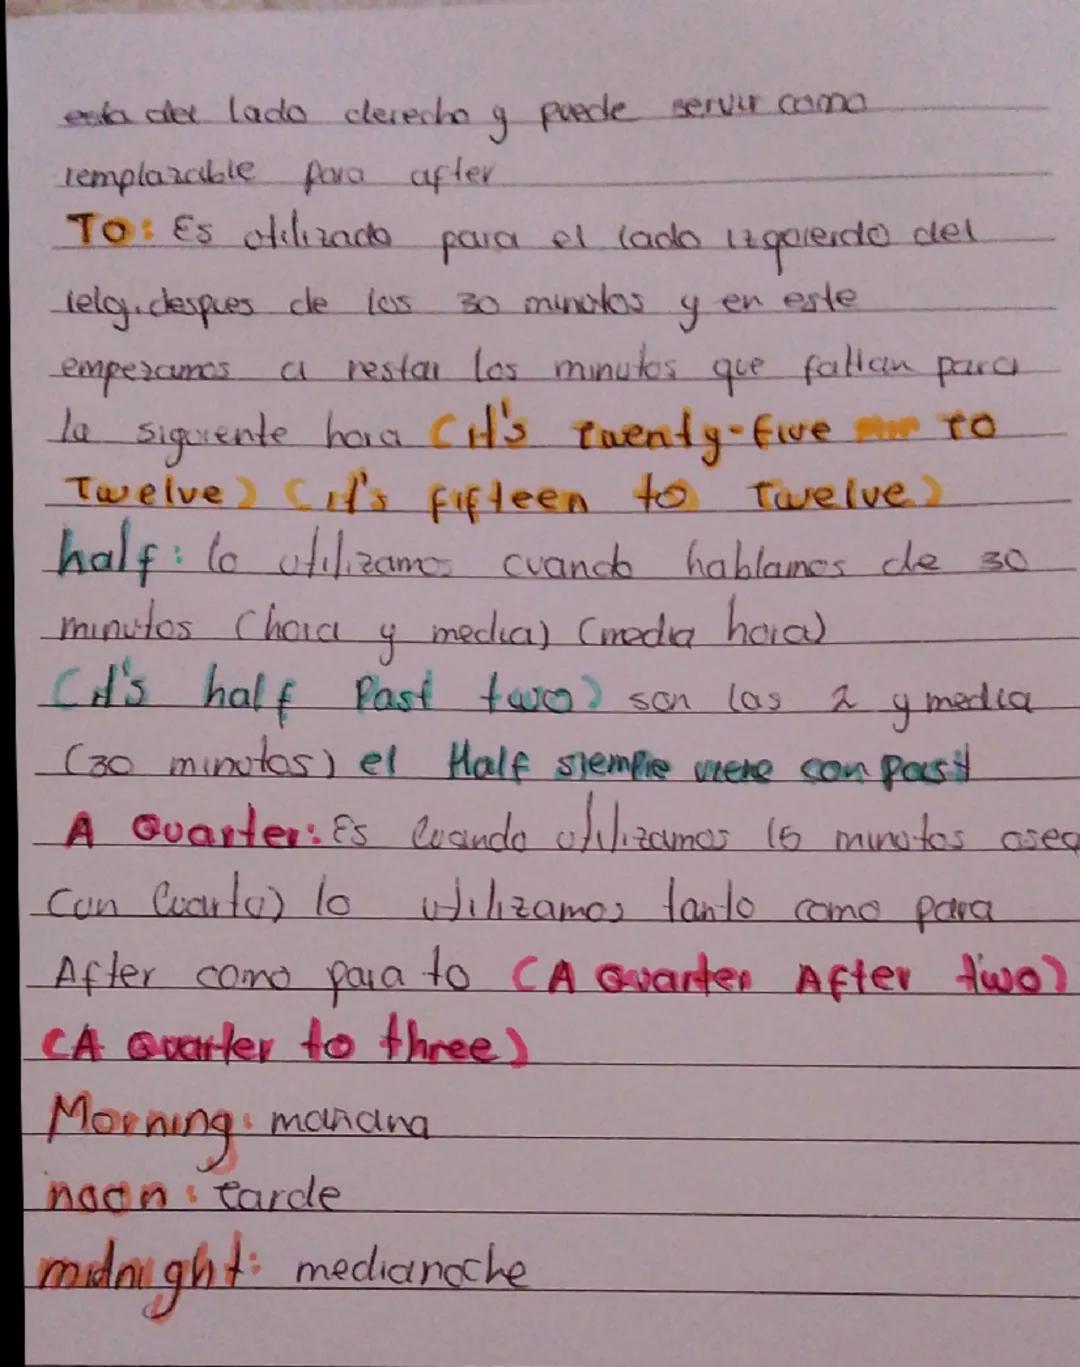 esta del lado derecho y puede servir como
remplazable para after
TO: Es utilizado para el lado izquierdo del
reloj. despues de los 30 minutos y en este
empezamos a restar los minutos que faltan para
la siguiente hora (it's twenty-five to
Twelve) (it's fifteen to Twelve)
half: lo utilizamos cuando hablamos de 30
minutos (hora y media) (media hora)
(it's half Past two) son las 2 y media
(30 minutos) el Half siempre viene con past
A Quarter: Es Cuando utilizamos 15 minutos osea
Con Cuarto) lo utilizamos tanto como para
After como para to (A Quarter After two)
(A Quarter to three)
Morning: mañana
noon: tarde
midnight: medianoche